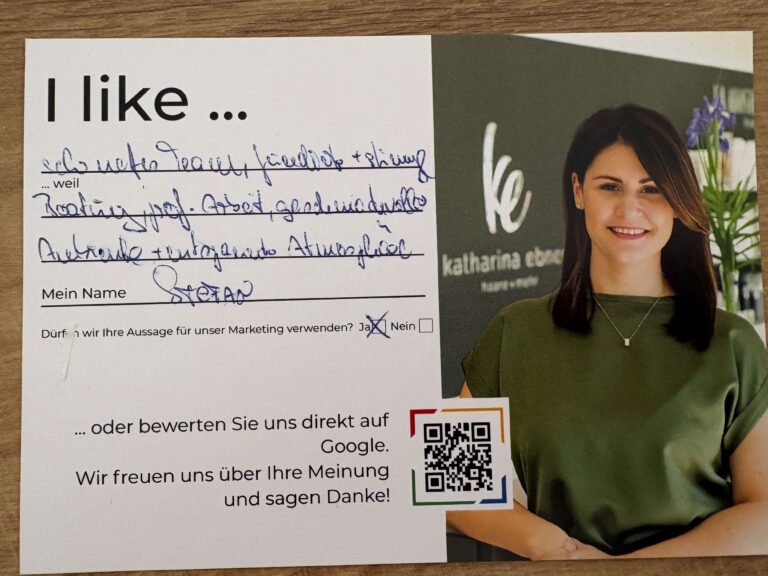 I like ...
Team, +
... weil
prof. Arbeit, geschmackvolle
Getränke + entspannende Atmosphäre
Mein Name STEFAN
Dürfen wir Ihre Aussage für unser Marketing verwenden? Ja Nein
... oder bewerten Sie uns direkt auf
Google.
Wir freuen uns über Ihre Meinung
und sagen Danke!
ke
katharina ebne
haare + mehr